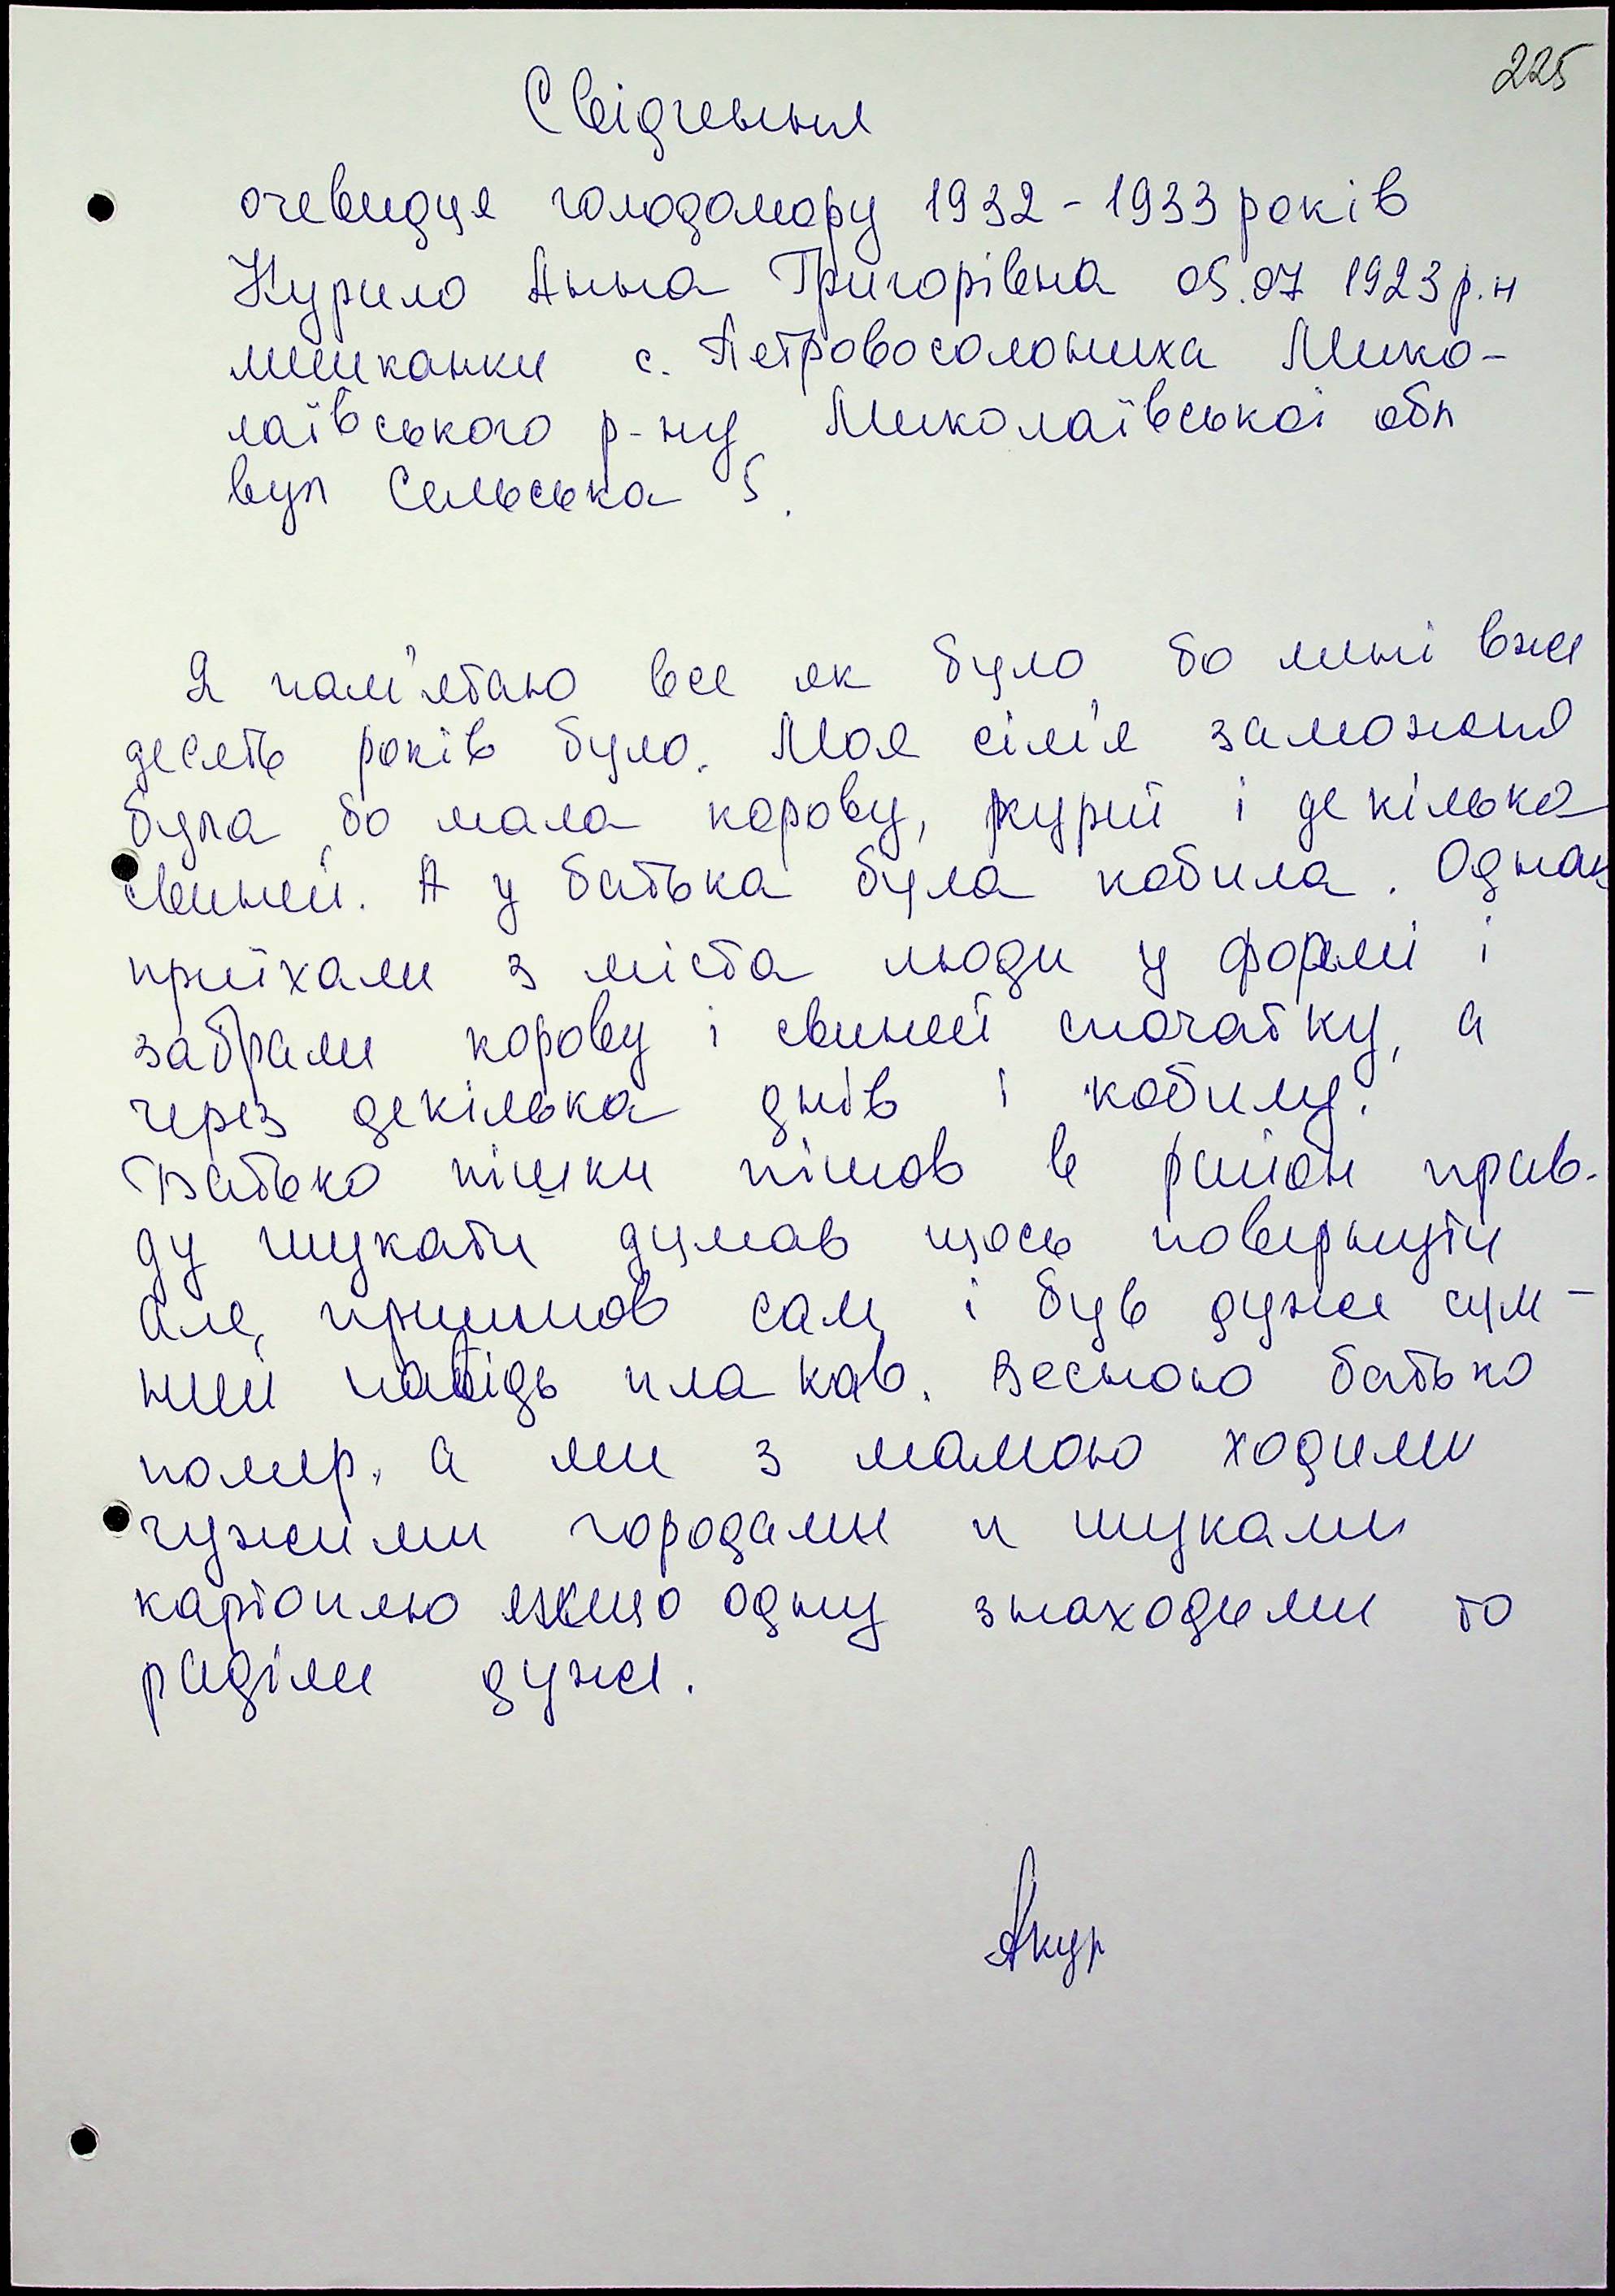 225
Свідчення
очевидця голодомору 1932-1933 років
Курило Анна Григорівна 05.07 1923 р.н
мешканки с. Петровосолониха Мико-
лаївського р-ну Миколаївської обл
вул Сельська 5.
Я пам'ятаю все як було бо мені вже
десять років було. Моя сім'я заможня
була бо мала корову, курий і декілька
свиней. А у батька була кобила. Однак
приїхали з міста люди у формі і
забрали корову і свиней спочатку, а
через декілька днів і кобилу.
Батько пішки пішов в район прав-
ду шукати думав щось повернути
але, прийшов сам і був дуже сум-
ний навідь плакав. Весною батько
помер, а ми з мамою ходили
чужими городами и шукали
картоплю якщо одну знаходили то
раділи дуже.
Акур